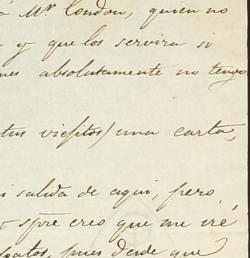 á Mr. London, quien no
y que los servira si
nes absolutamente no tengo
tus viejitos) una carta,
i salida de aqui, pero
spre creo que me iré
gatos, pues desde que